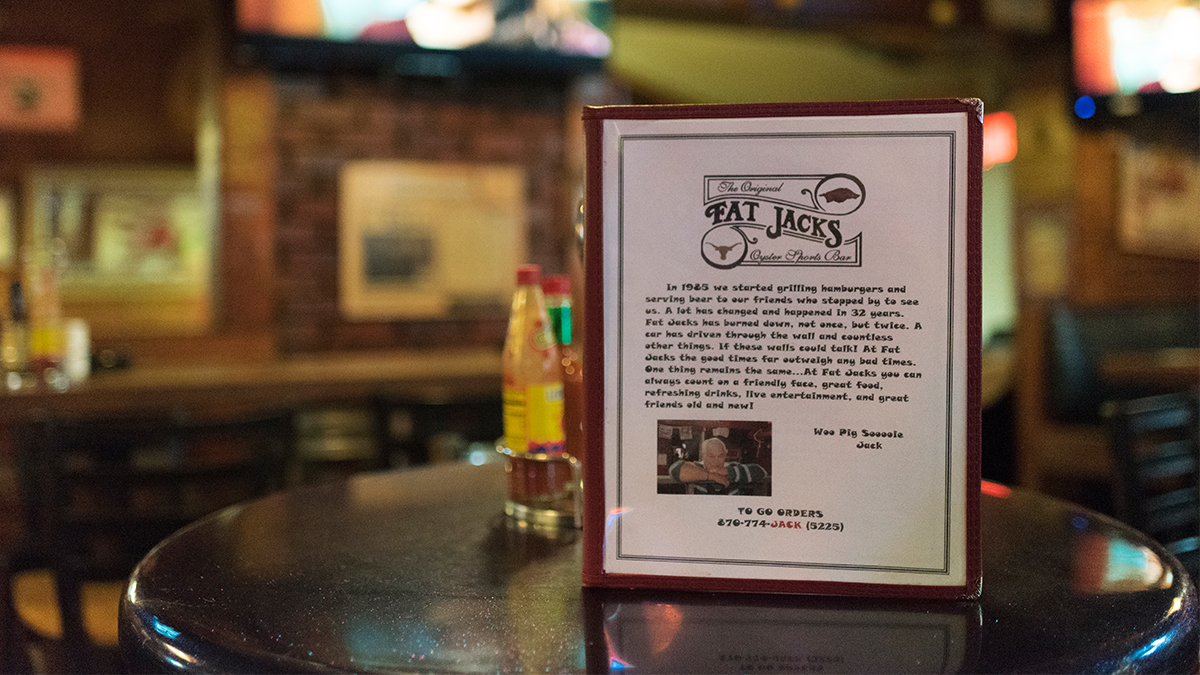 The Original
FAT JACKS
Oyster Sports Bar
In 1985 we started grilling hamburgers and
serving beer to our friends who stopped by to see
us. A lot has changed and happened in 32 years.
Fat Jacks has burned down, not once, but twice. A
car has driven through the wall and countless
other things. If these walls could talk! At Fat
Jacks the good times far outweigh any bad times.
One thing remains the same...At Fat Jacks you can
always count on a friendly face, great food,
refreshing drinks, live entertainment, and great
friends old and new!
Woo Pig Sooooie
Jack
TO GO ORDERS
870-774-JACK (5225)